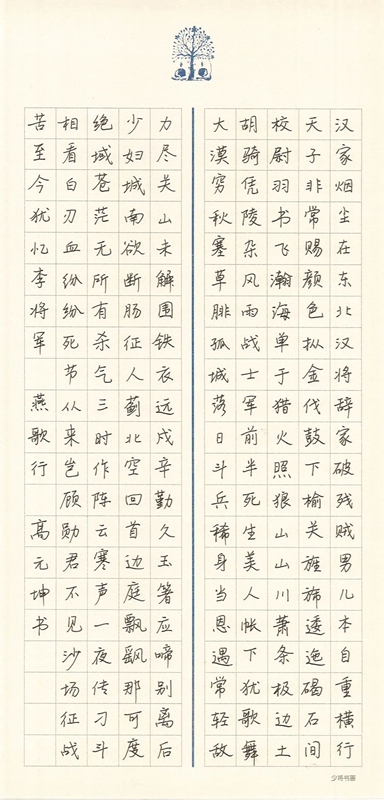 汉家烟尘在东北汉将辞家破残贼男儿本自重横行
天子非常赐颜色枞金伐鼓下榆关旌旆逶迤碣石间
校尉羽书飞瀚海单于猎火照狼山山川萧条极边土
胡骑凭陵杂风雨战士军前半死生美人帐下犹歌舞
大漠穷秋塞草腓孤城落日斗兵稀身当恩遇常轻敌
力尽关山未解围铁衣远戍辛勤久玉箸应啼别离后
少妇城南欲断肠征人蓟北空回首边庭飘飖那可度
绝域苍茫无所有杀气三时作阵云寒声一夜传刁斗
相看白刃血纷纷死节从来岂顾勋君不见沙场征战
苦至今犹忆李将军 燕歌行 高元坤书